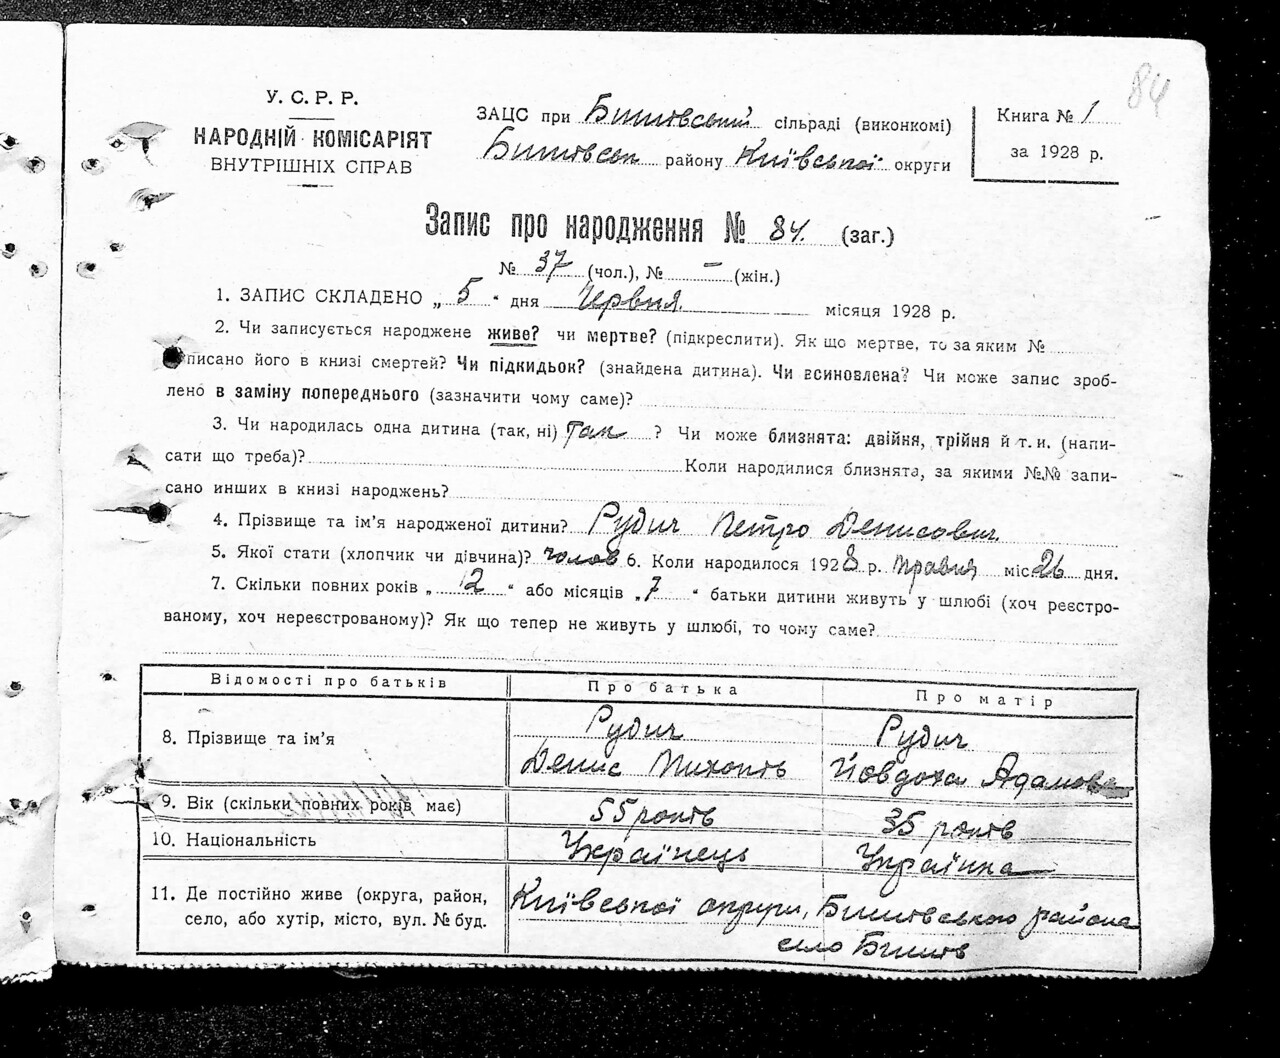 84
У. С. Р. Р.
НАРОДНІЙ КОМІСАРІЯТ
ВНУТРІШНІХ СПРАВ
ЗАЦС при Бишовський сільраді (виконкомі)
Бишовськ району Київської округи
Книга № 1
за 1928 р.
Запис про народження № 84. (заг.)
№ 37 (чол.), № – (жін.)
1. ЗАПИС СКЛАДЕНО „ 5 “ дня Червня місяця 1928 р.
2. Чи записується народжене живе? чи мертве? (підкреслити). Як що мертве, то за яким №
писано його в книзі смертей? Чи підкидьок? (знайдена дитина). Чи всиновлена? Чи може запис зроб-
лено в заміну попереднього (зазначити чому саме)?
3. Чи народилась одна дитина (так, ні) так ? Чи може близнята: двійня, трійня й т. и. (напи-
сати що треба)? Коли народилися близнята, за якими №№ запи-
сано инших в книзі народжень?
4. Прізвище та ім’я народженої дитини? Рудич Петро Денисович.
5. Якої стати (хлопчик чи дівчина)? чолов 6. Коли народилося 1928 р. травня міс. 26 дня.
7. Скільки повних років „ 12 “ або місяців „ 7 “ батьки дитини живуть у шлюбі (хоч реєстро-
ваному, хоч нереєстрованому)? Як що тепер не живуть у шлюбі, то чому саме?
Відомості про батьків Про батька Про матір
8. Прізвище та ім’я Рудич Рудич
Денис Йовдоха Адамовна
9. Вік (скільки повних років має) 55 років 35 років
10. Національність Українець Українка
11. Де постійно живе (округа, район, Київської округи, Бишовського района
село, або хутір, місто, вул. № буд. село Бишів